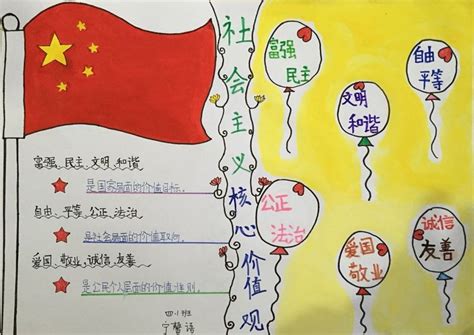 社会主义核心价值观
富强、民主、文明、和谐
是国家层面的价值目标。
自由、平等、公正、法治
是社会层面的价值取向。
爱国、敬业、诚信、友善
是公民个人层面的价值准则。
四·1班
富强
民主
自由
平等
文明
和谐
公正
法治
爱国
敬业
诚信
友善